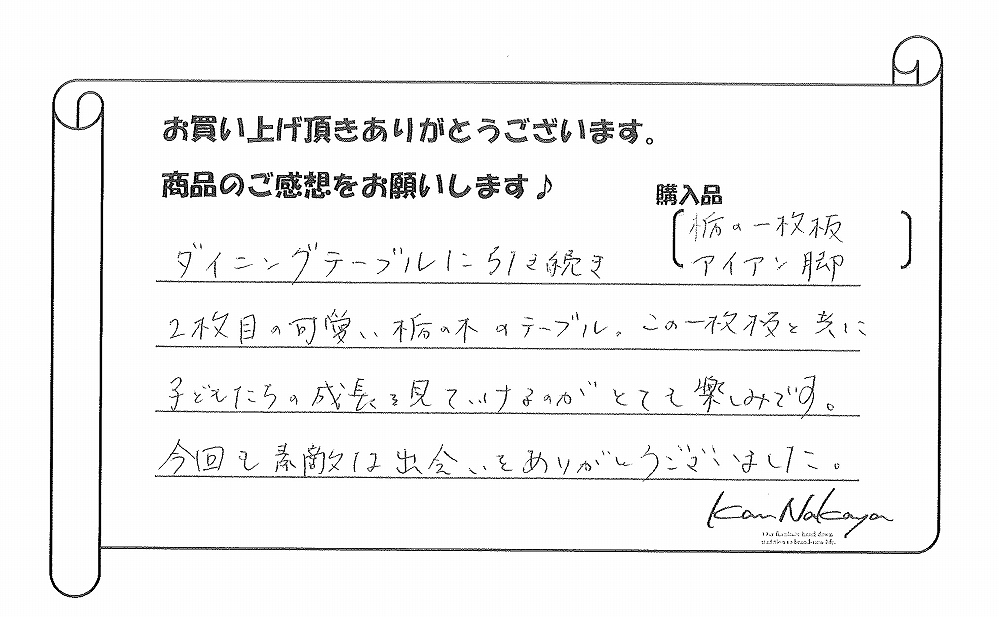 お買い上げ頂きありがとうございます。
商品のご感想をお願いします♪
購入品
栃の一枚板
アイアン脚
ダイニングテーブルに引き続き
2枚目の可愛い栃の木のテーブル。この一枚板と共に
子どもたちの成長を見ていけるのがとても楽しみです。
今回も素敵な出会いをありがとうございました。
Kan Nakaya